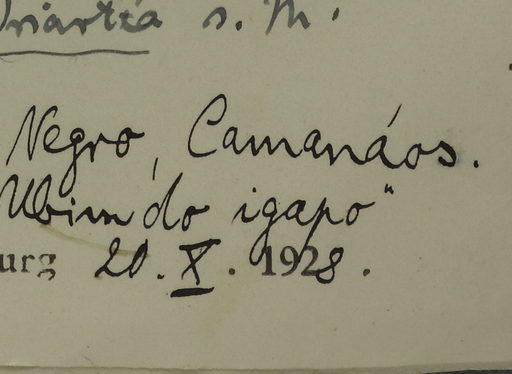 Iriartea s. M.
Negro, Camanáos.
Ubim do igapo"
urg 20. X. 1928.